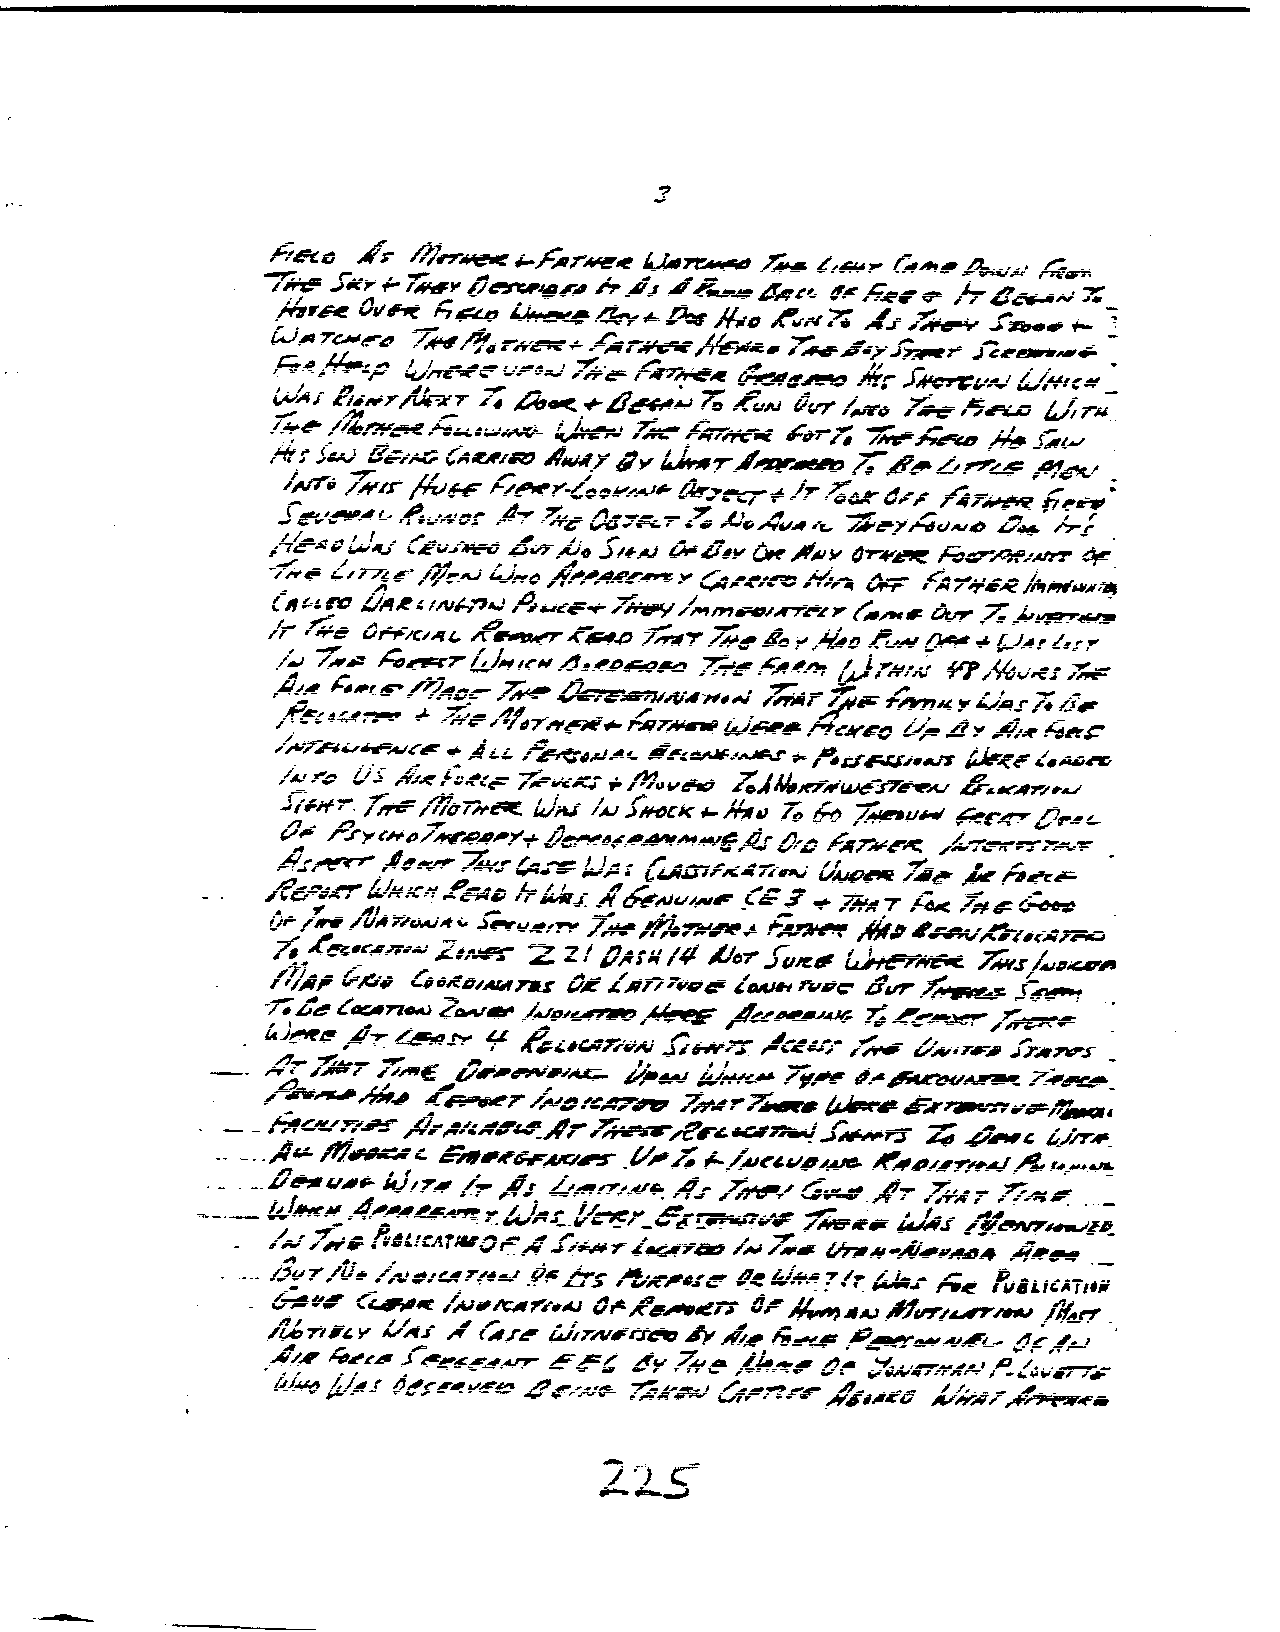 3
FIELD AS MOTHER + FATHER WATCHED THE LIGHT CAME DOWN FROM
THE SKY + THEY DESCRIBED IT AS A ROUND BALL OF FIRE + IT BEGAN TO
HOVER OVER FIELD WHERE BOY + DOG HAD RUN TO AS THEY STOOD +
WATCHED THE MOTHER + FATHER HEARD THE BOY START SCREAMING
FOR HELP WHERE UPON THE FATHER GRABBED HIS SHOTGUN WHICH
WAS RIGHT NEXT TO DOOR + BEGAN TO RUN OUT INTO THE FIELD WITH
THE MOTHER FOLLOWING WHEN THE FATHER GOT TO THE FIELD HE SAW
HIS SON BEING CARRIED AWAY BY WHAT APPEARED TO BE LITTLE MEN
INTO THIS HUGE FIERY-LOOKING OBJECT + IT TOOK OFF FATHER FIRED
SEVERAL ROUNDS AT THE OBJECT TO NO AVAIL THEY FOUND DOG IT'S
HEAD WAS CRUSHED BUT NO SIGN OF BOY OR ANY OTHER FOOTPRINTS OF
THE LITTLE MEN WHO APPARENTLY CARRIED HIM OFF FATHER
CALLED DARLINGTON POLICE + THEY IMMEDIATELY CAME OUT TO
IT THE OFFICIAL REPORT READ THAT THE BOY HAD RUN OFF + WAS LOST
IN THE FOREST WHICH BORDERED THE FARM WITHIN 48 HOURS THE
AIR FORCE MADE THE DETERMINATION THAT THE FAMILY WAS TO BE
RELOCATED + THE MOTHER + FATHER WERE PICKED UP BY AIR FORCE
INTELLIGENCE + ALL PERSONAL BELONGINGS + POSSESSIONS WERE LOADED
INTO US AIR FORCE TRUCKS + MOVED TO A NORTHWESTERN RELOCATION
SIGHT. THE MOTHER WAS IN SHOCK + HAD TO GO THROUGH GREAT DEAL
OF PSYCHOTHERAPY + DEPROGRAMMING AS DID FATHER INTERESTING
ASPECT ABOUT THIS CASE WAS CLASSIFICATION UNDER THE AIR FORCE
REPORT WHICH READ IT WAS A GENUINE CE 3 + THAT FOR THE GOOD
OF THE NATIONAL SECURITY THE MOTHER + FATHER HAD BEEN RELOCATED
TO RELOCATION ZONES Z21 DASH 14 NOT SURE WHETHER THIS
MAP GRID COORDINATES OR LATITUDE LONGITUDE BUT THERE SEEM
TO BE LOCATION ZONES INDICATED HERE ACCORDING TO REPORT THERE
WERE AT LEAST 4 RELOCATION SIGHTS ACROSS THE UNITED STATES
AT THAT TIME DEPENDING UPON WHICH TYPE OF ENCOUNTER THESE
PEOPLE HAD REPORT INDICATED THAT THERE WERE EXTENSIVE
FACILITIES AVAILABLE AT THESE RELOCATION SIGHTS TO DEAL WITH
ALL MEDICAL EMERGENCIES UP TO + INCLUDING RADIATION
WITH IT AS AS THEY COULD AT THAT TIME
WHICH APPARENTLY WAS VERY EXTENSIVE THERE WAS MENTIONED
IN THE PUBLICATION OF A SIGHT LOCATED IN THE UTAH-NEVADA AREA
BUT NO INDICATION OF ITS PURPOSE OR WHAT IT WAS FOR PUBLICATION
GAVE CLEAR INDICATION OF REPORTS OF HUMAN MUTILATION MOST
NOTIBLY WAS A CASE WITNESSED BY AIR FORCE PERSONNEL OF AN
AIR FORCE SERGEANT E E6 BY THE NAME OF JONATHAN P. LOVETTE
WHO WAS OBSERVED BEING TAKEN CAPTIVE ABOARD WHAT APPEARED
225